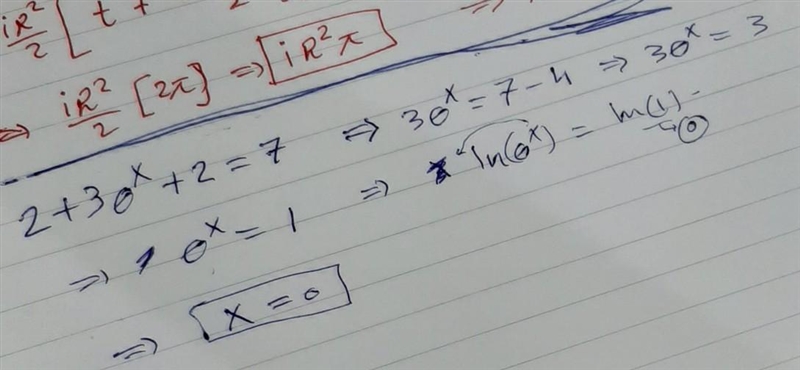 iR²/2 [ t +
⇒ iR²/2 [2π] ⇒ iR²π
2+3e^x+2=7 ⇒ 3e^x=7-4 ⇒ 3e^x=3
⇒ e^x=1 ⇒ ln(e^x)=ln(1) → 0
⇒ x=0